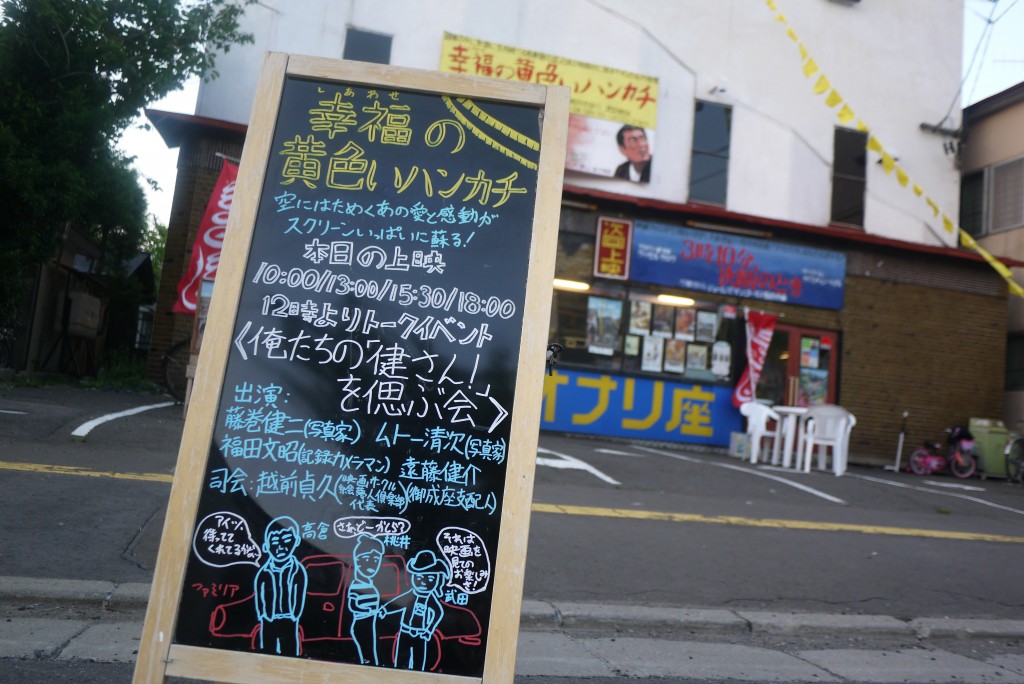 しあわせ
幸福の
黄色いハンカチ
空にはためくあの愛と感動が
スクリーンいっぱいに蘇る!
本日の上映
10:00/13:00/15:30/18:00
12時よりトークイベント
〈俺たちの「健さん!」
を偲ぶ会〉
出演:
藤巻健二(写真家) ムトー清次(写真家)
福田文昭(記録カメラマン) 遠藤健介
司会:越前貞久(映画サークル
代表)(御成座支配人)
アイツ、
待ってて
くれてるかなー
高倉
さぁどーかしら?
桃井
それは
映画を
見ての
お楽しみ
さ!
武田
ファミリア
幸福の黄色いハンカチ
次回上映
3時10分、
オナリ座